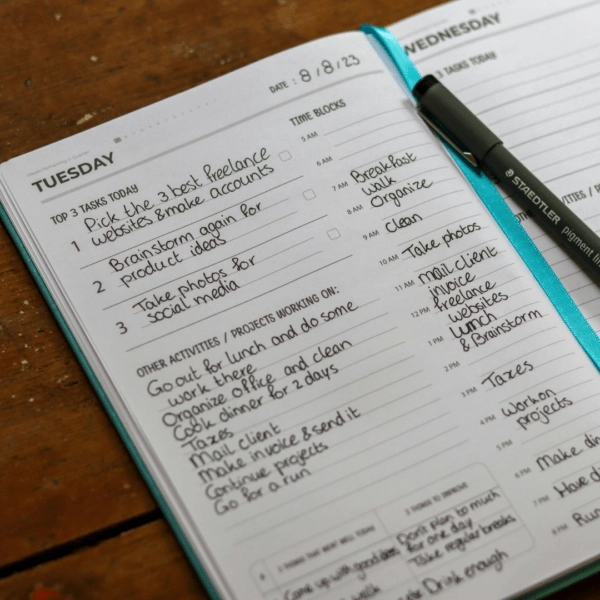 DATE : 8/8/23
TUESDAY
TOP 3 TASKS TODAY
1 Pick the 3 best freelance
websites & make accounts
2 Brainstorm again for
product ideas
3 Take photos for
social media
OTHER ACTIVITIES / PROJECTS WORKING ON:
Go out for lunch and do some
work there
Organize office and clean
Cook dinner for 2 days
Taxes
Mail client
Make invoice & send it
Continue projects
Go for a run
TIME BLOCKS
5 AM
6 AM
7 AM Breakfast
walk
8 AM Organize
9 AM clean
10 AM Take photos
11 AM mail client
invoice
12 PM freelance
websites
1 PM Lunch
& Brainstorm
2 PM
3 PM Taxes
4 PM work on
projects
5 PM
6 PM Make
7 PM Have
8 PM Run
3 THINGS THAT WENT WELL TODAY
Came up with good
walk
3 THINGS TO IMPROVE
Don't plan to much
for one day
Take regular breaks
Drink enough
WEDNESDAY
3 TASKS TODAY
STAEDTLER pigment